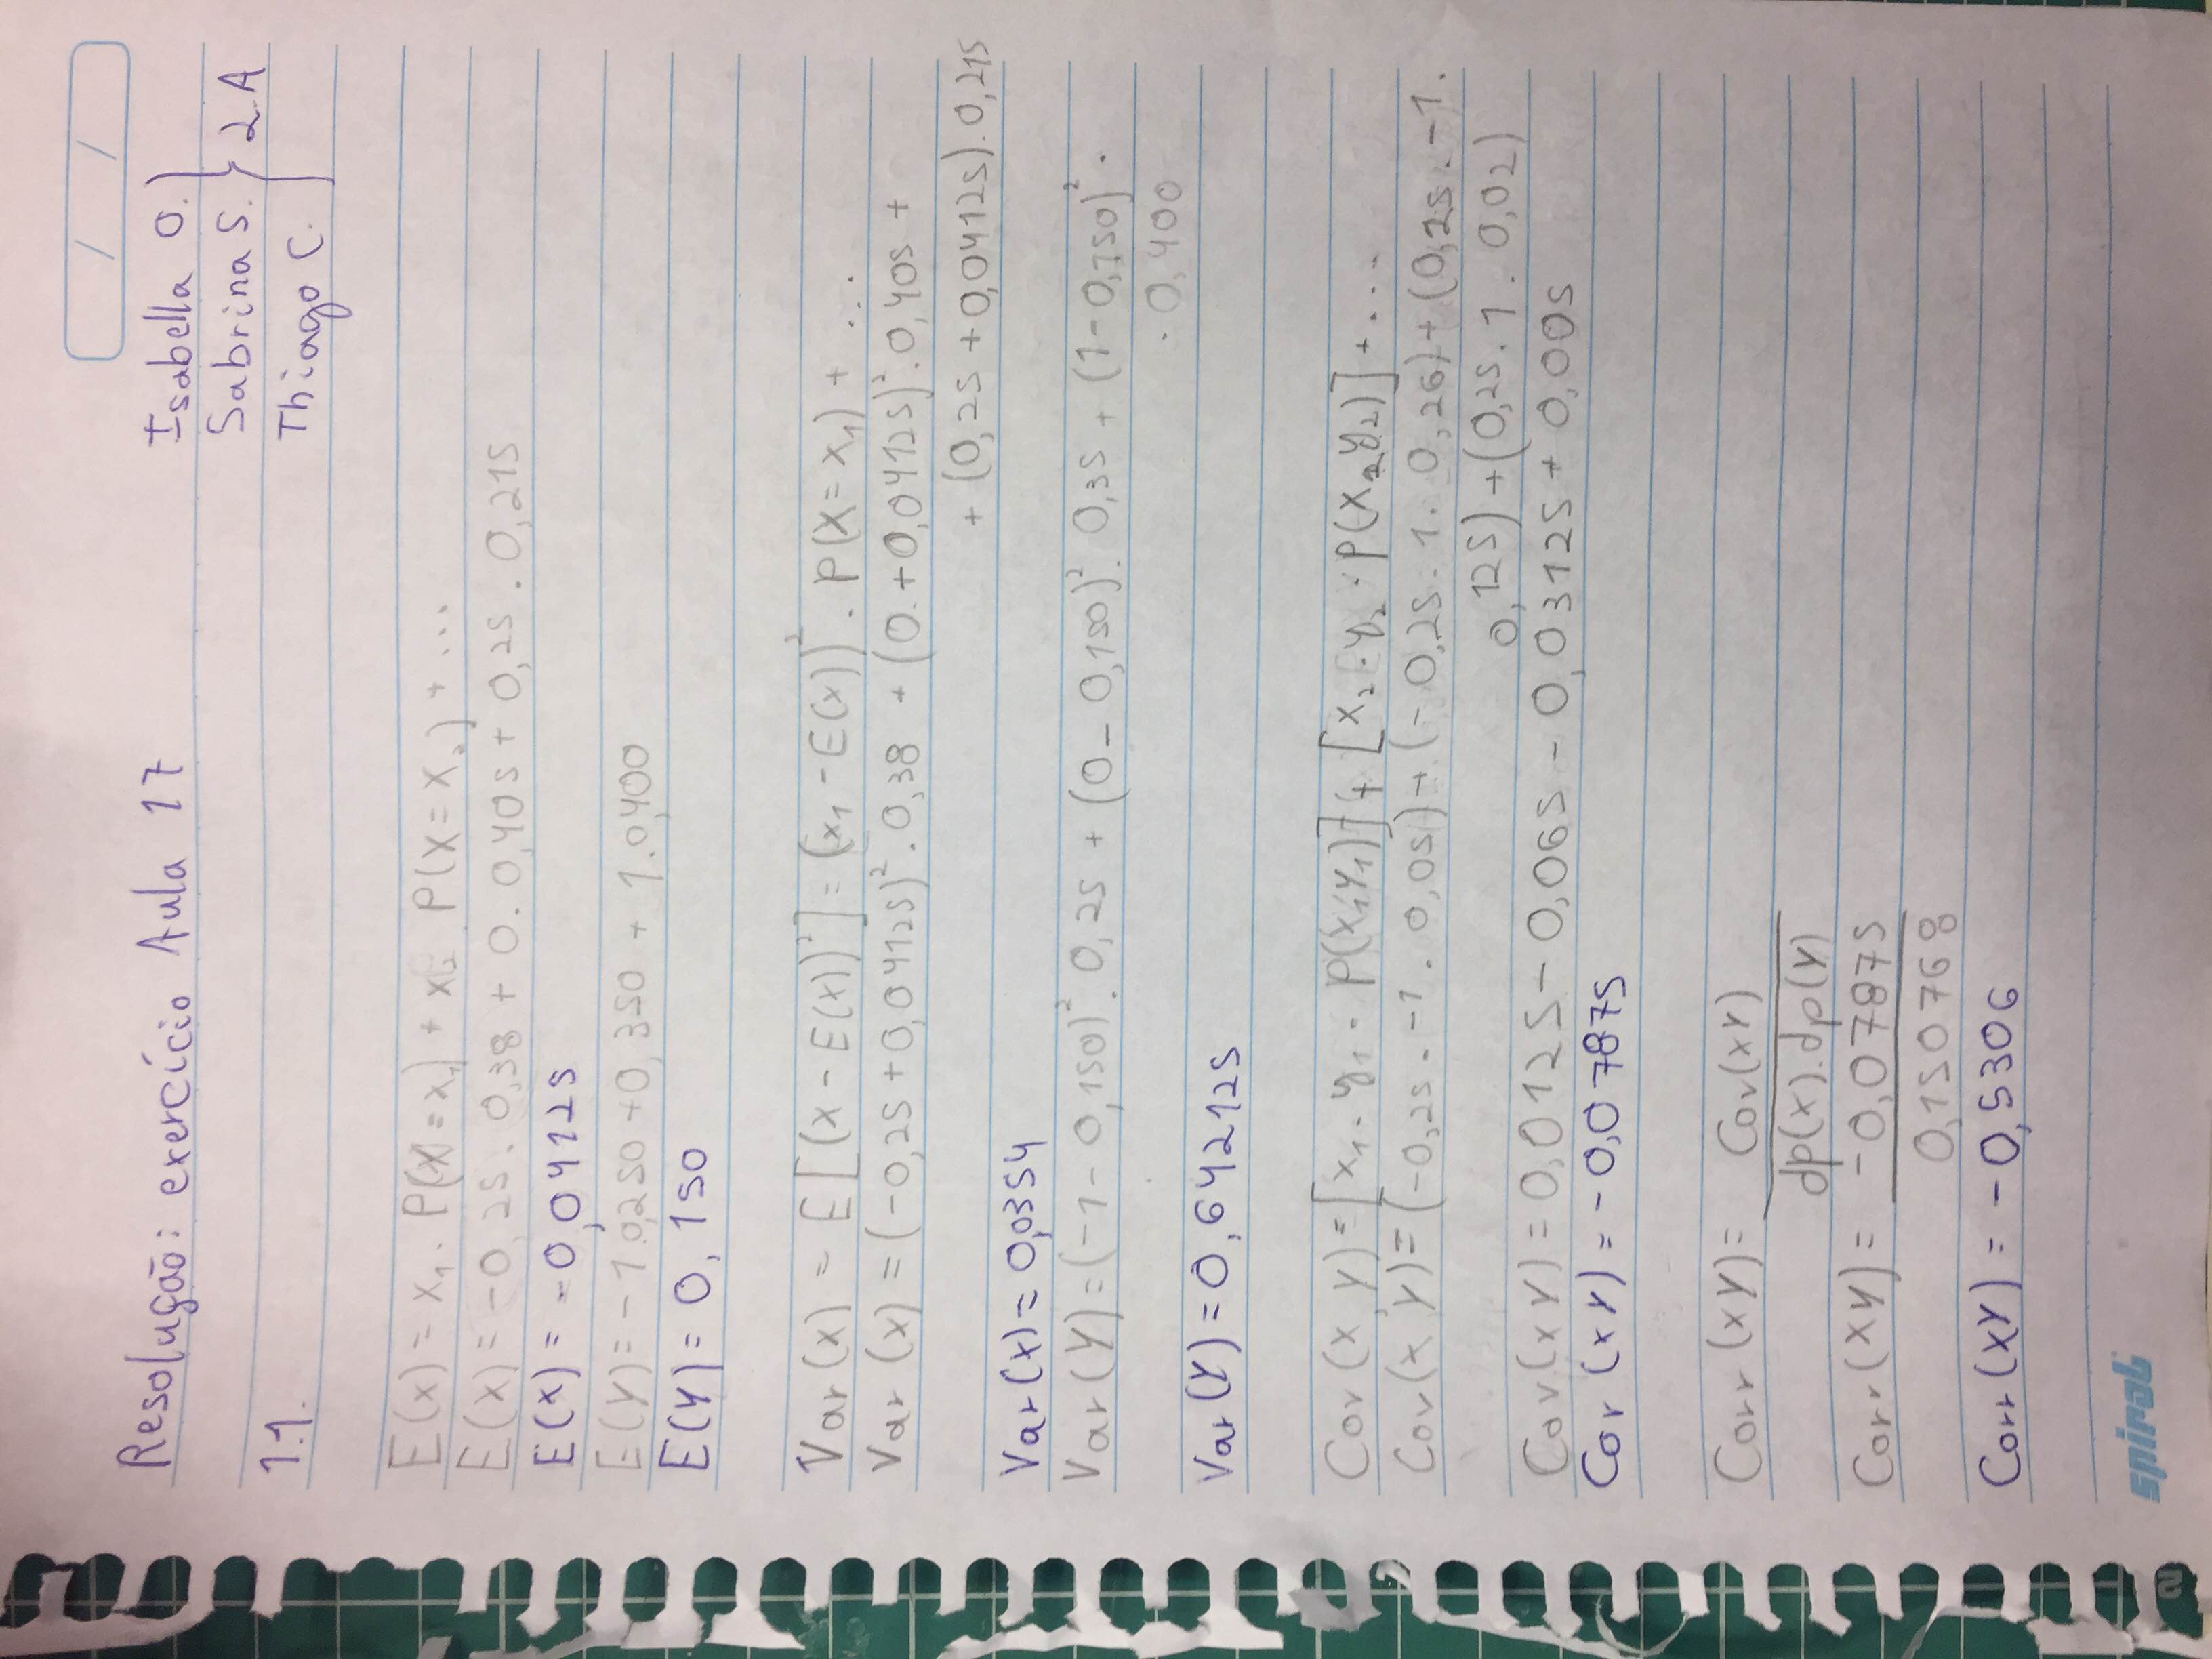 Resolução: exercício Aula 17
Isabella O.
Sabrina S. } 2A
Thiago C.
1.1.
E(x) = x₁ . P(X = x₁) + x₂ P(X = x₂) + ...
E(x) = -0,25 . 0,38 + 0 . 0,405 + 0,25 . 0,215
E(x) = -0,04125
E(Y) = -1 0,250 + 0 , 350 + 1 . 0,400
E(Y) = 0,150
Var(x) = E[(x - E(x))²] = (x₁ - E(x))² . P(X = x₁) + ...
Var (x) = (-0,25 + 0,04125)² . 0,38 + (0 + 0,04125)² . 0,405 +
+ (0,25 + 0,04125) . 0,215
Var(x) = 0,0354
Var(Y) = (-1 - 0,150)² . 0,25 + (0 - 0,150)² . 0,35 + (1 - 0,150)² .
. 0,400
Var(Y) = 0,642125
Cov(x,y) = [x₁ . y₁ . P(x₁,y₁)] + [x₂ . y₂ . P(x₂ y₂)] + ...
Cov(x,y) = (-0,25 . -1 . 0,05) + (-0,25 . 1 . 0,26) + (0,25 . -1 .
0,125) + (0,25 . 1 . 0,02)
Cov(xY) = 0,0125 - 0,065 - 0,03125 + 0,005
Cov (xY) = -0,07875
Corr(xY) = Cov(xY)
dp(x).dp(Y)
Corr(xY) = -0,07875
0,150768
Corr(xY) = -0,5306
spiral
2